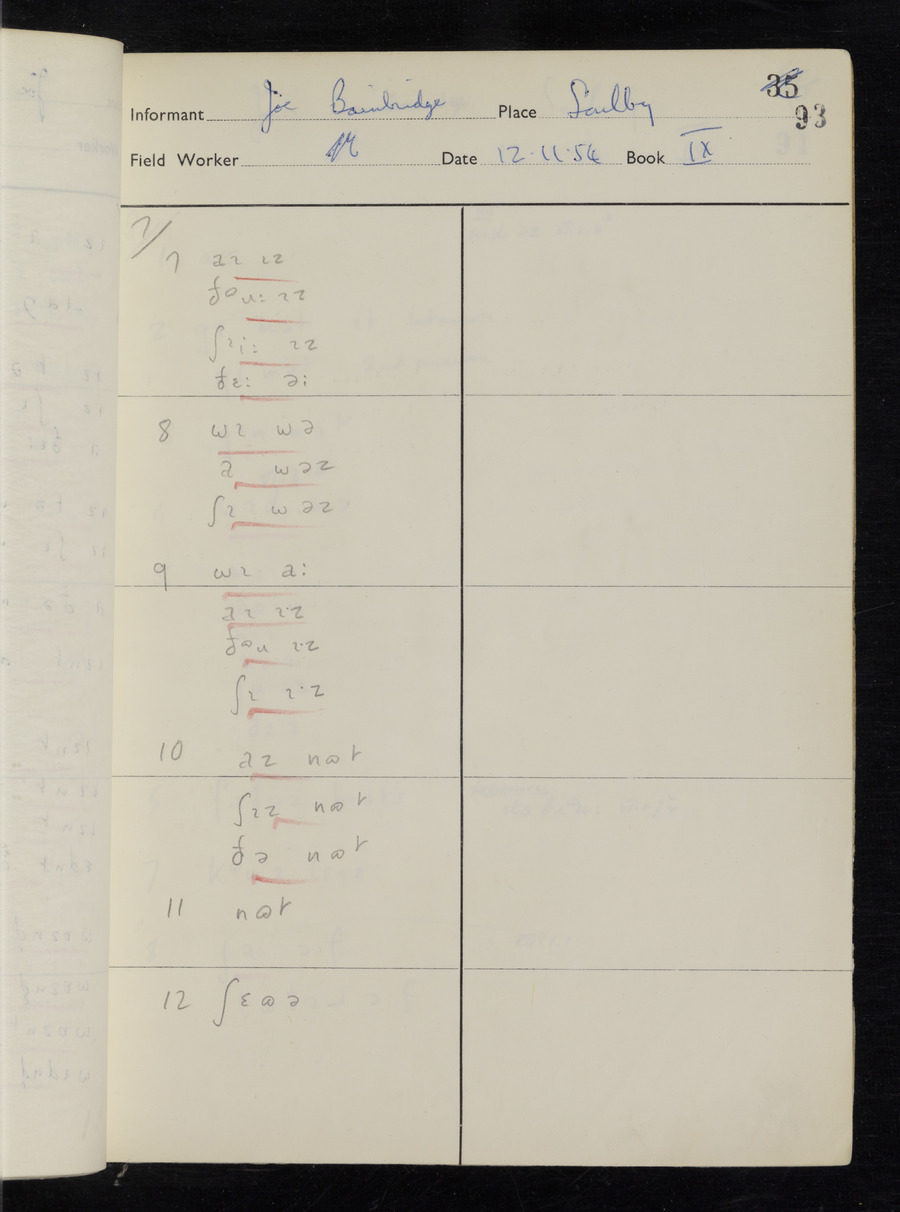 35
Informant Joe Bainbridge Place Soulby
93
Field Worker Date 12.11.54 Book IX
7/
7 aɪ ɪz
ðəu: ɪz
ʃɪi: ɪz
ðɛ: ə:
8 wɪ wə
a wəz
ʃɪ wəz
9 wɪ a:
aɪ ɪ·z
ðəu ɪ·z
ʃɪ ɪ·z
10 az nɒt
ʃɪz nɒt
ðə nɒt
11 nɒt
12 ʃɛɒə